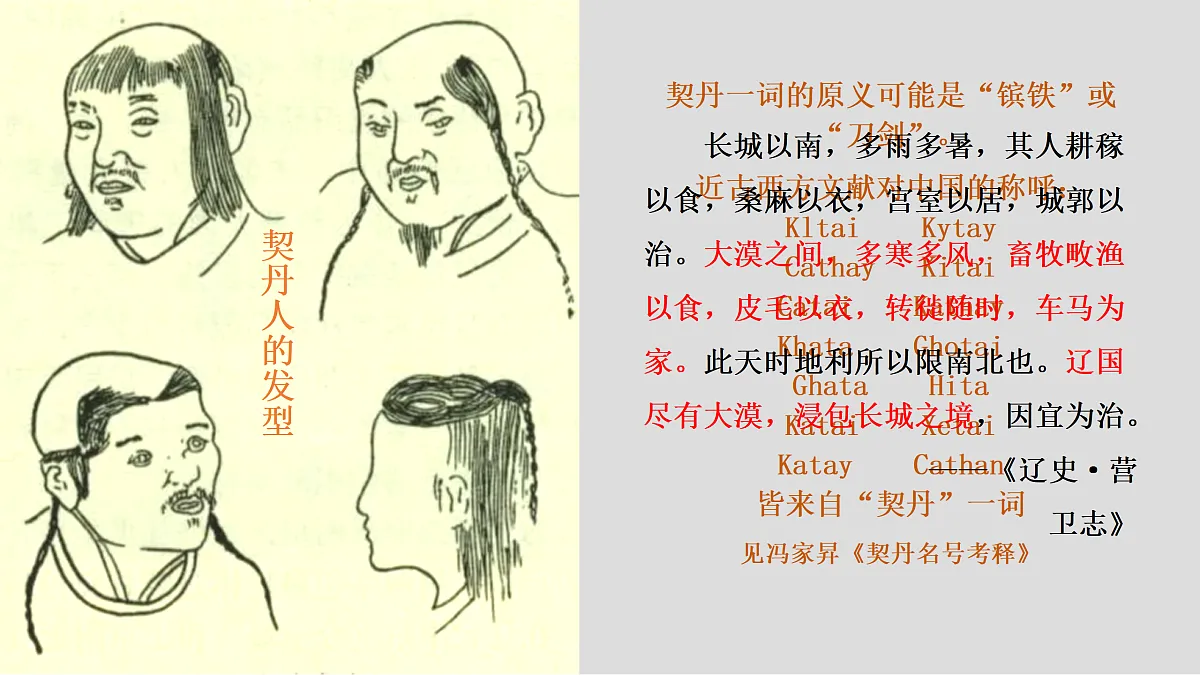 契丹人的发型
契丹一词的原义可能是“镔铁”或
“刀剑”。
近古西方文献对中国的称呼，
Kltai Kytay
Cathay Kitai
Catai Kathay
Khata Ghotai
Ghata Hita
Katai Xetai
Katay Cathan
皆来自“契丹”一词
见冯家昇《契丹名号考释》
长城以南，多雨多暑，其人耕稼
以食，桑麻以衣，宫室以居，城郭以
治。大漠之间，多寒多风，畜牧畋渔
以食，皮毛以衣，转徙随时，车马为
家。此天时地利所以限南北也。辽国
尽有大漠，浸包长城之境，因宜为治。
——《辽史·营
卫志》